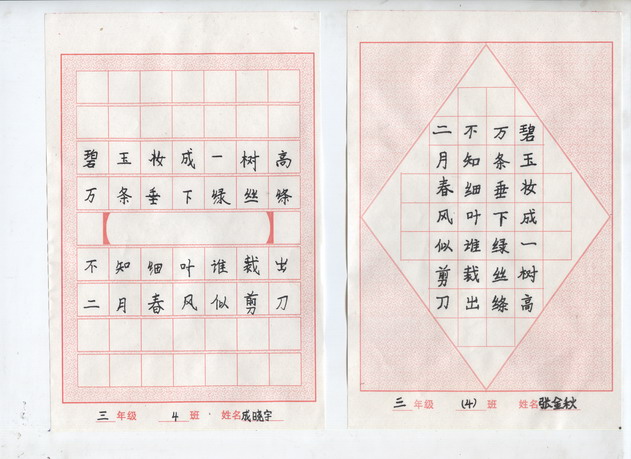 碧玉妆成一树高
万条垂下绿丝绦
不知细叶谁裁出
二月春风似剪刀
三年级 4班 姓名成晓宇
碧玉妆成一树高
万条垂下绿丝绦
不知细叶谁裁出
二月春风似剪刀
三年级 (4)班 姓名张金秋